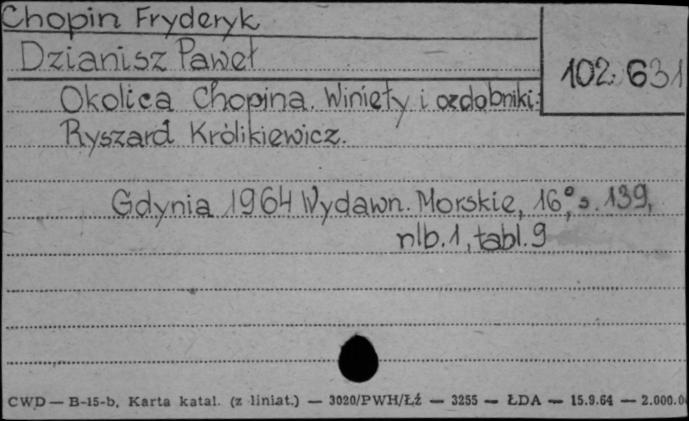 Chopin Fryderyk
Dzianisz Paweł
102.631
Okolica Chopina. Winięty i ozdobniki:
Ryszard Królikiewicz.
Gdynia 1964 Wydawn. Morskie, 16°, s. 139,
nlb. 1, tabl. 9
CWD — B-15-b, Karta katal. (z liniat.) — 3020/PWH/Łź — 3255 — ŁDA — 15.9.64 — 2.000.0